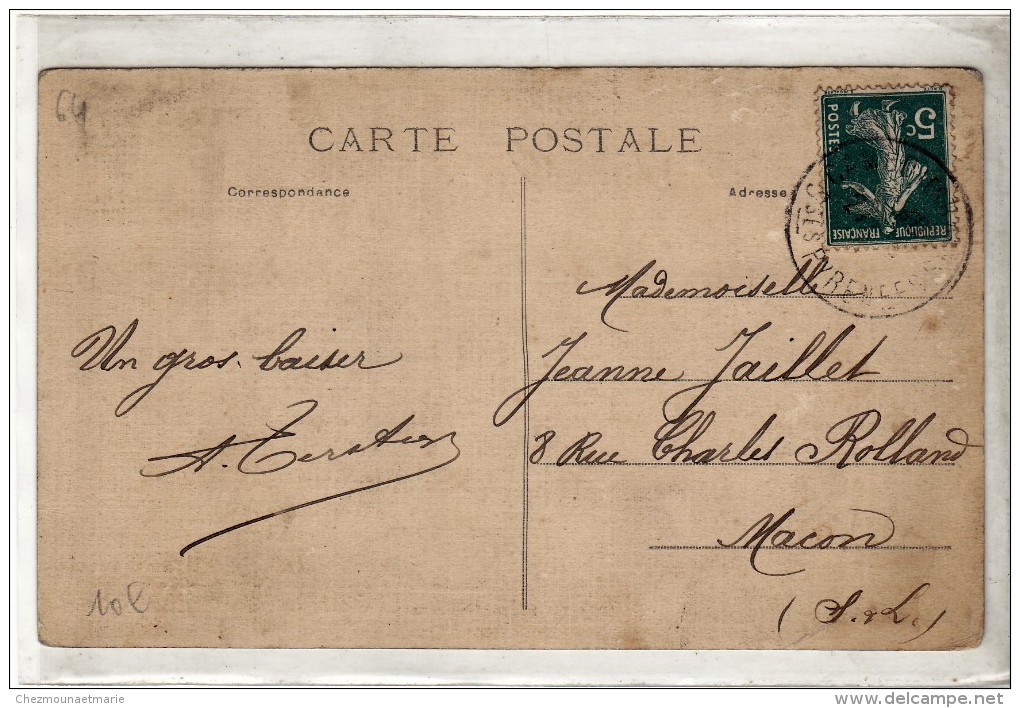 64
CARTE POSTALE
Correspondance
Adresse
5c
POSTES
REPUBLIQUE FRANÇAISE
Un gros baiser
Mademoiselle
Jeanne Jaillet
8 Rue Charles Rolland
Macon
(S. & L.)
10€
Chezmounaetmarie
www.delcampe.net